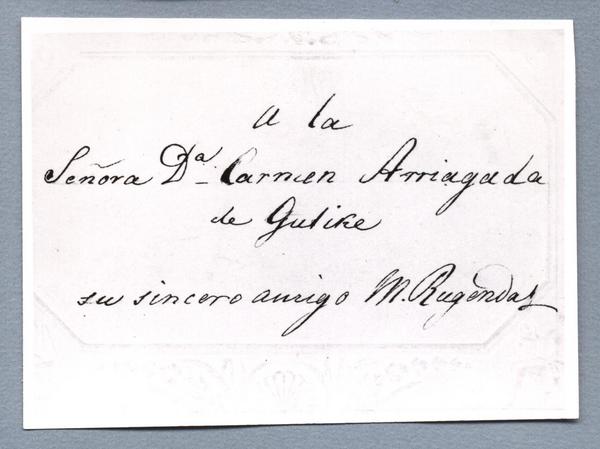 a la
Señora Dª Carmen Arriagada
de Gutike
su sincero amigo M. Rugendas